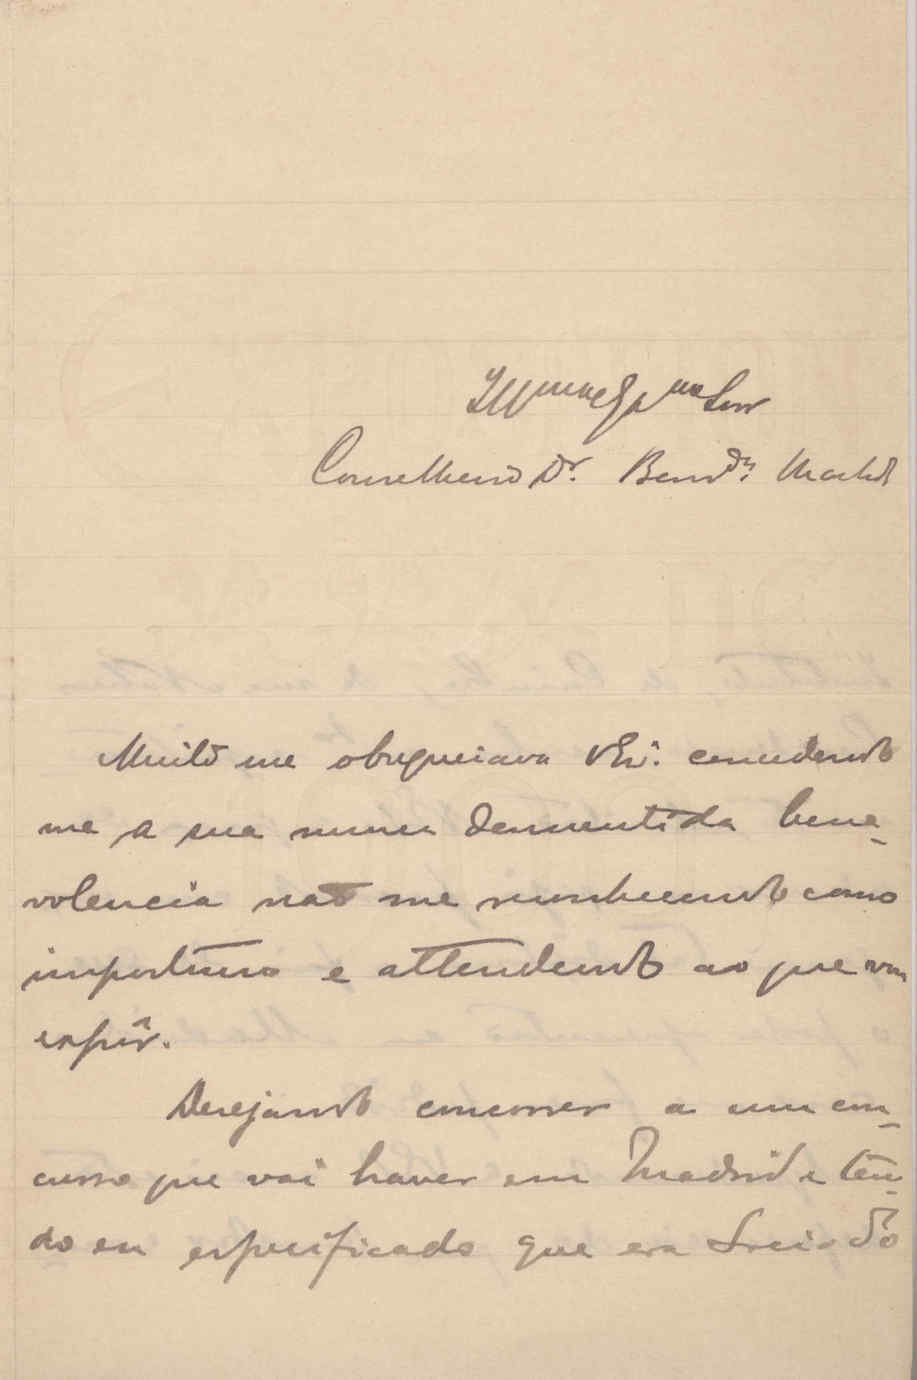 Illmo e Exmo Snr
Conselheiro Dr. Berndo. Machado
Muito me obsequiava V Exª. concedendo
me a sua nunca desmentida bene-
volencia não me reconhecendo como
importuno e attendendo ao que vou
expôr.
Desejando concorrer a um con-
curso que vai haver em Madrid e ten-
do eu especificado que era Socio do